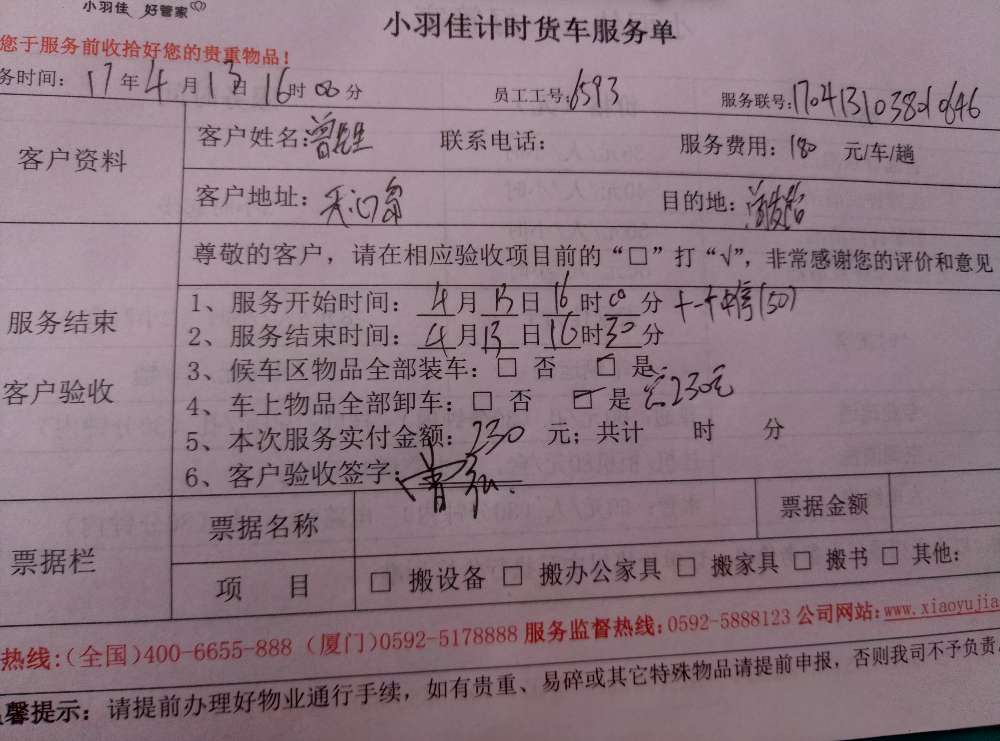 小羽佳 好管家
小羽佳计时货车服务单
您于服务前收拾好您的贵重物品！
务时间：17年4月13日16时00分 员工工号：6593 服务联号：
客户资料
客户姓名： 联系电话： 服务费用：180 元/车/趟
客户地址： 目的地：
服务结束
客户验收
尊敬的客户，请在相应验收项目前的“□”打“√”，非常感谢您的评价和意见
1、服务开始时间：4月13日16时00分 (50)
2、服务结束时间：4月13日16时30分
3、候车区物品全部装车：□ 否 ☑ 是
4、车上物品全部卸车：□ 否 ☑ 是 230元
5、本次服务实付金额：230 元；共计 时 分
6、客户验收签字：
票据栏
票据名称 票据金额
项 目 □ 搬设备 □ 搬办公家具 □ 搬家具 □ 搬书 □ 其他：
热线：(全国)400-6655-888 (厦门)0592-5178888 服务监督热线：0592-5888123 公司网站：www.xiaoyujia
温馨提示：请提前办理好物业通行手续，如有贵重、易碎或其它特殊物品请提前申报，否则我司不予负责